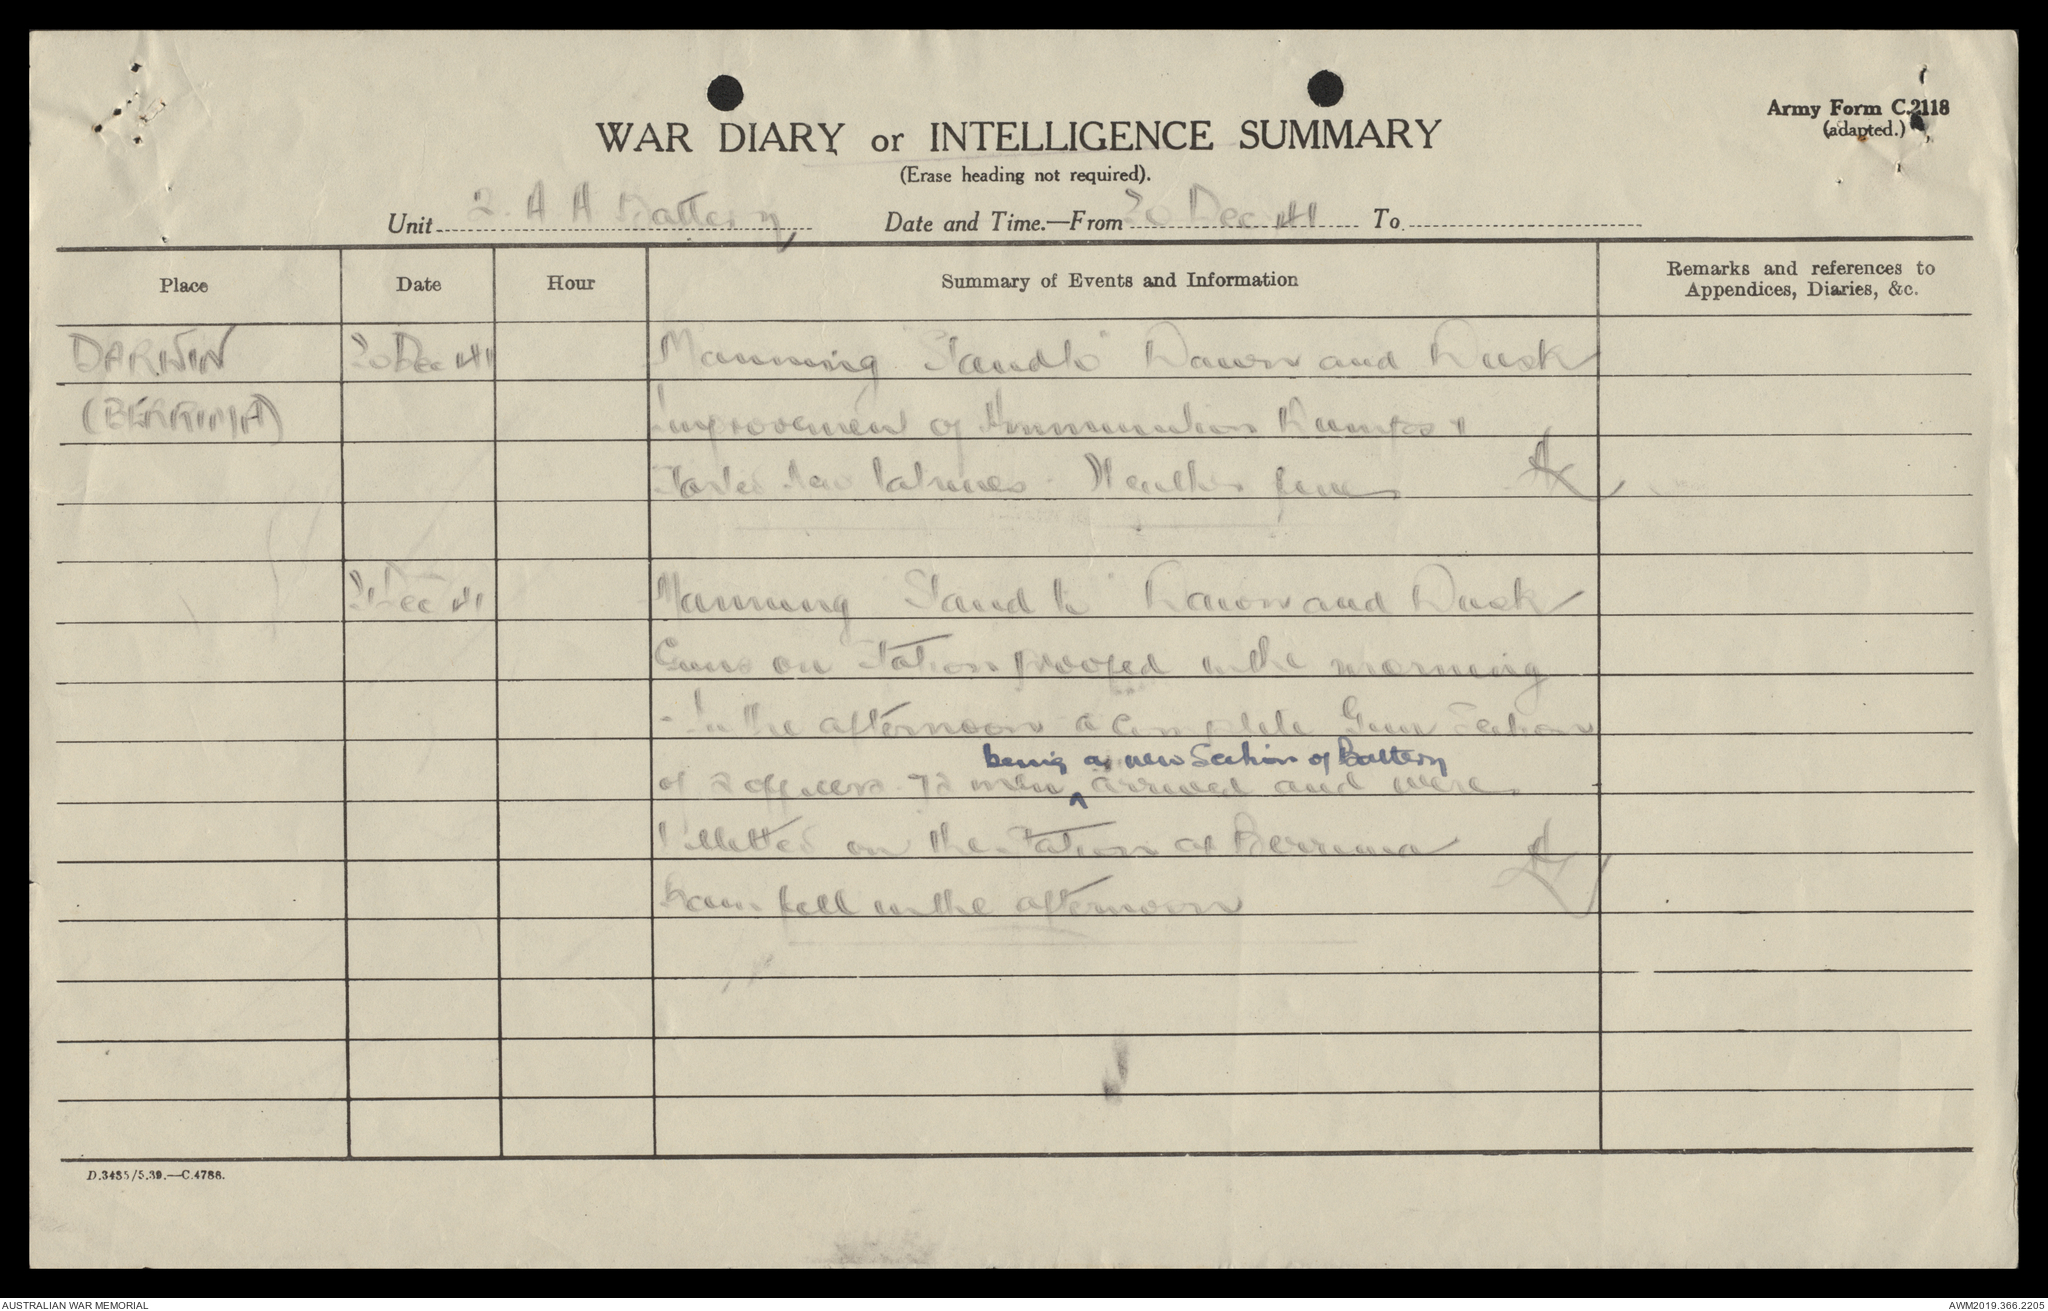 Army Form C.2118
(adapted.)
WAR DIARY or INTELLIGENCE SUMMARY
(Erase heading not required).
Unit 2. A A Battery Date and Time.—From 20 Dec 41 To
Place Date Hour Summary of Events and Information Remarks and references to Appendices, Diaries, &c.
DARWIN 20 Dec 41 Manning "Stand to" Dawn and Dusk
(BERRIMA) Improvement of Ammunition Dumps &
new latrines. Weather fine
21 Dec 41 Manning "Stand to" Dawn and Dusk
Guns on Station proofed in the morning
- In the afternoon a complete Gun Section
being a new Section of Battery
of 2 officers 72 men ^ arrived and were
billetted on the Station at Berrima
Rain fell in the afternoon
D.3485/5.39.—C.4788.
AUSTRALIAN WAR MEMORIAL AWM2019.366.2205